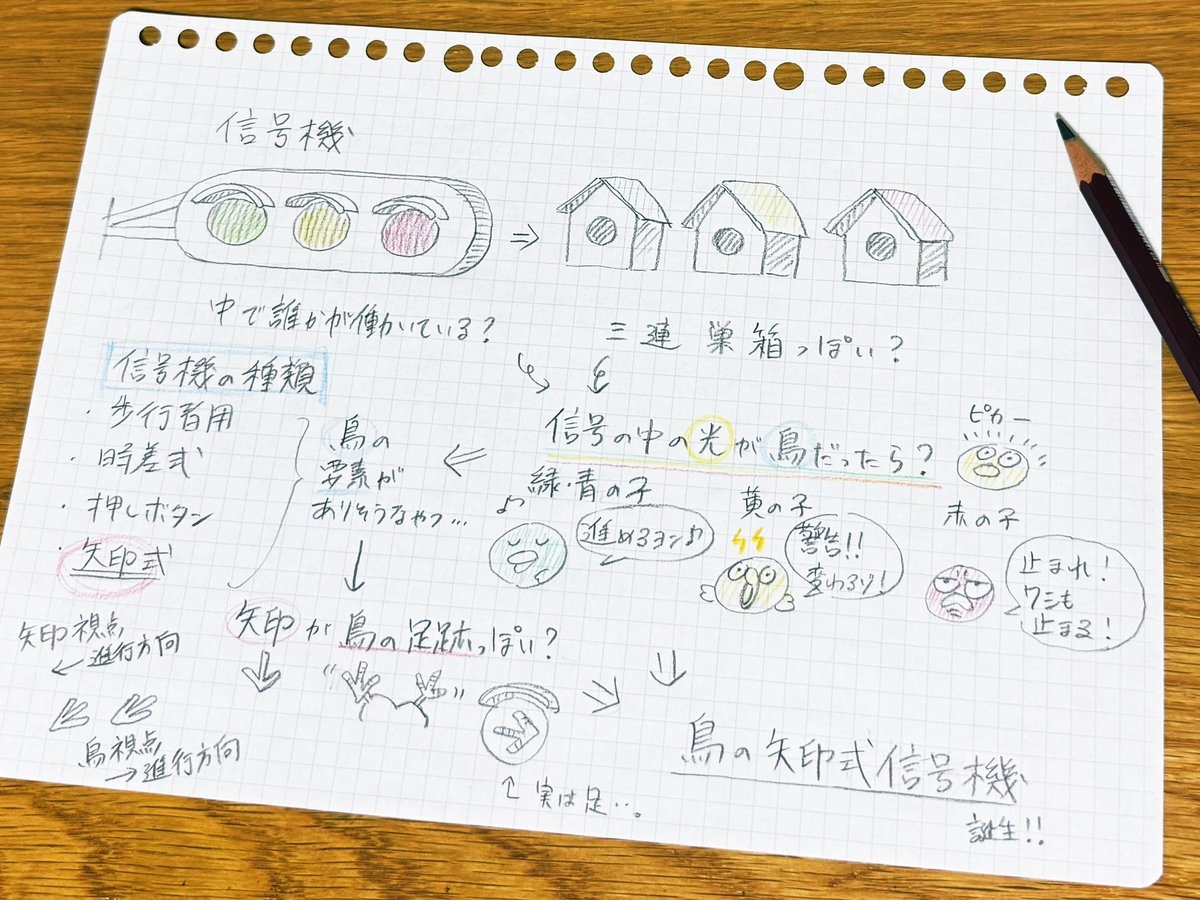 信号機
中で誰かが働いている?
三連 巣箱っぽい?
信号の中の光が鳥だったら?
ピカー
緑・青の子
進めるヨン♪
黄の子
警告!!
変わるわ!
赤の子
止まれ!
ワシも
止まる!
信号機の種類
・歩行者用
・時差式
・押しボタン
・矢印式
鳥の
要素が
ありそうなやつ…
矢印が鳥の足跡っぽい?
矢印視点
←進行方向
鳥視点
→進行方向
↑実は足…。
鳥の矢印式信号機
誕生!!